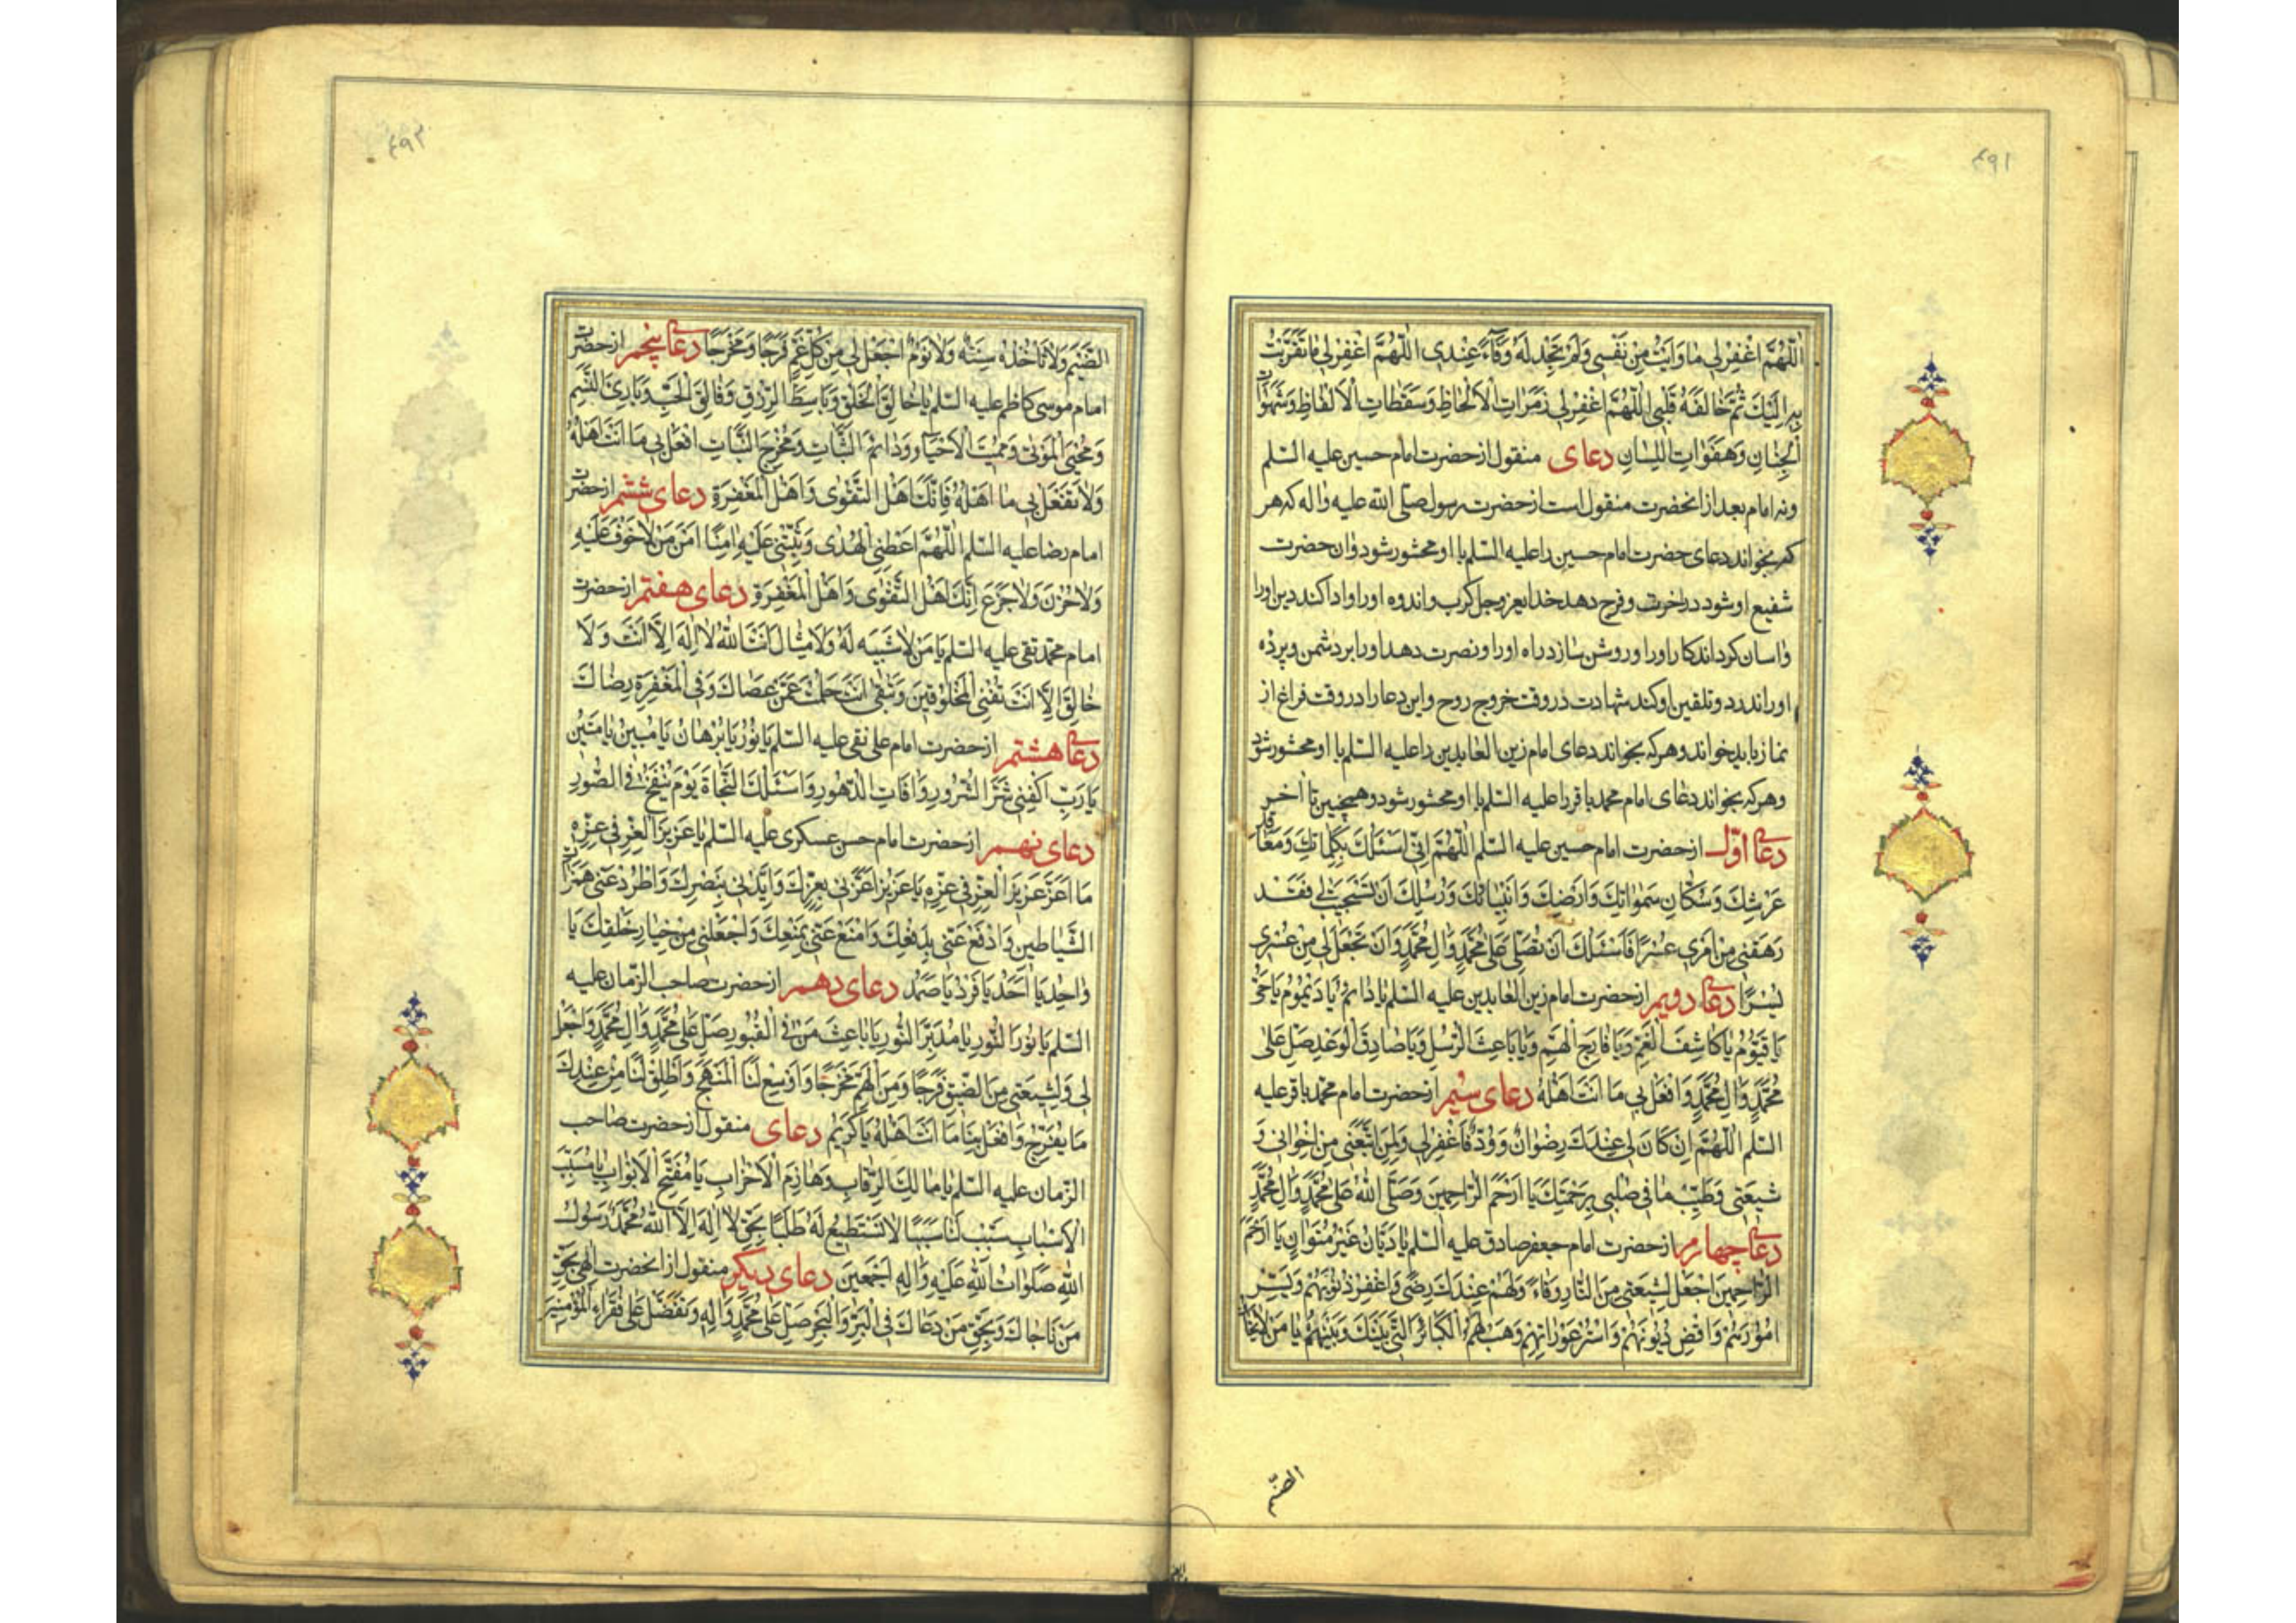 ۴۹۱
اَللّهُمَّ اغْفِرْلی ما وَاَیْتُ مِنْ نَفْسی وَلَمْ تَجِدْ لَهُ وَفآءً عِنْدی اَللّهُمَّ اغْفِرْلی ما تَقَرَّبْتُ
بِهِ اِلَیْكَ ثُمَّ خالَفَهُ قَلْبی اَللّهُمَّ اغْفِرْلی رَمَزاتِ الْاَلْحاظِ وَسَقَطاتِ الْاَلْفاظِ وَشَهَواتِ
الْجَنانِ وَهَفَواتِ اللِّسانِ دعای منقول از حضرت امام حسین علیه السّلم
ونه امام بعد از انحضرت منقول است از حضرت رسول صلّی الله علیه واله که هر
که بخواند دعای حضرت امام حسین را علیه السّلم با او محشور شود وان حضرت
شفیع او شود در اخرت و فرج دهد خدایعزوجل کرب واندوه اورا وادا کند دین اورا
واسان کرداند کار اورا وروشن سازد راه اورا ونصرت دهد اورا بر دشمن وپرده
اورا ندرد وتلقین او کند شهادت در وقت خروج روح واین دعا را در وقت فراغ از
نماز باید خواند وهر که بخواند دعای امام زین العابدین را علیه السّلم با او محشور شود
وهر که بخواند دعای امام محمد باقر را علیه السّلم با او محشور شود وهمچنین تا اخر
دعای اوّل از حضرت امام حسین علیه السّلم اَللّهُمَّ اِنّی اَسْئَلُكَ بِکَلِماتِكَ وَمَعاقِدِ
عَرْشِكَ وَسُکّانِ سَمواتِكَ وَاَرْضِكَ وَاَنْبِیائِكَ وَرُسُلِكَ اَنْ تَسْتَجیبَ لی فَقَدْ
رَهَقَنی مِنْ اَمْری عُسْرًا فَاَسْئَلُكَ اَنْ تُصَلِّیَ عَلی مُحَمَّدٍ وَالِ مُحَمَّدٍ وَاَنْ تَجْعَلَ لی مِنْ عُسْری
یُسْرًا دعای دویم از حضرت امام زین العابدین علیه السّلم یا دائمُ یا دَیْمُومُ یا حَیُّ
یا قَیُّومُ یا کاشِفَ الْغَمِّ وَیا فارِجَ الْهَمِّ وَیا باعِثَ الرُّسُلِ وَیا صادِقَ الْوَعْدِ صَلِّ عَلی
مُحَمَّدٍ وَالِ مُحَمَّدٍ وَافْعَلْ بی ما اَنْتَ اَهْلُهُ دعای سیّم از حضرت امام محمّد باقر علیه
السّلم اَللّهُمَّ اِنْ کانَ لی عِنْدَكَ رِضْوانٌ وَوُدٌّ فَاغْفِرْلی وَلِمَنِ اتَّبَعَنی مِنْ اِخْوانی وَ
شیعَتی وَطَیِّبْ ما فی صُلْبی بِرَحْمَتِكَ یا اَرْحَمَ الرّاحِمینَ وَصَلَّی اللهُ عَلی مُحَمَّدٍ وَالِ مُحَمَّدٍ
دعای چهارم از حضرت امام جعفر صادق علیه السّلم یا دَیّانُ غَیْرَ مُتَوانٍ یا اَرْحَمَ
الرّاحِمینَ اجْعَلْ لِشیعَتی مِنَ النّارِ وَقاءً وَلَهُمْ عِنْدَكَ رِضًی وَاغْفِرْ ذُنُوبَهُمْ وَیَسِّرْ
اُمُورَهُمْ وَاقْضِ دُیُونَهُمْ وَاسْتُرْ عَوْراتِهِمْ وَهَبْ لَهُمُ الْکَبائرَ الَّتی بَیْنَكَ وَبَیْنَهُمْ یا مَنْ لا یَخافُ
الضّیم
۴۹۲
الضَّیْمَ وَلا تَاْخُذُهُ سِنَةٌ وَلا نَوْمٌ اجْعَلْ لی مِنْ کُلِّ غَمٍّ فَرَجًا وَمَخْرَجًا دعای پنجم از حضرت
امام موسی کاظم علیه السّلم یا خالِقَ الْخَلْقِ وَباسِطَ الرِّزْقِ وَفالِقَ الْحَبِّ وَبارِئَ النَّسَمِ
وَمُحْیِیَ الْمَوْتی وَمُمیتَ الْاَحْیاءِ وَدائمَ الثَّباتِ وَمُخْرِجَ النَّباتِ افْعَلْ بی ما اَنْتَ اَهْلُهُ
وَلا تَفْعَلْ بی ما اَنَا اَهْلُهُ فَاِنَّكَ اَهْلُ التَّقْوی وَاَهْلُ الْمَغْفِرَةِ دعای ششم از حضرت
امام رضا علیه السّلم اَللّهُمَّ اَعْطِنِی الْهُدی وَثَبِّتْنی عَلَیْهِ امِنًا اَمْنَ مَنْ لا خَوْفَ عَلَیْهِ
وَلا حُزْنَ وَلا جَزَعَ اِنَّكَ اَهْلُ التَّقْوی وَاَهْلُ الْمَغْفِرَةِ دعای هفتم از حضرت
امام محمّد تقی علیه السّلم یا مَنْ لا شَبیهَ لَهُ وَلا مِثالَ اَنْتَ اللهُ لا اِلهَ اِلّا اَنْتَ وَلا
خالِقَ اِلّا اَنْتَ تُفْنِی الْمَخْلُوقینَ وَتَبْقی اَنْتَ حَلُمْتَ عَمَّنْ عَصاكَ وَفِی الْمَغْفِرَةِ رِضاكَ
دعای هشتم از حضرت امام علی نقی علیه السّلم یا نُورُ یا بُرْهانُ یا مُبینُ یا مَتینُ
یا رَبِّ اکْفِنی شَرَّ الشُّرُورِ وَافاتِ الدُّهُورِ وَاَسْئَلُكَ النَّجاةَ یَوْمَ یُنْفَخُ فِی الصُّورِ
دعای نهم از حضرت امام حسن عسکری علیه السّلم یا عَزیزَ الْعِزِّ فی عِزِّهِ
ما اَعَزَّ عَزیزَ الْعِزِّ فی عِزِّهِ یا عَزیزُ اَعِزَّنی بِعِزِّكَ وَاَیِّدْنی بِنَصْرِكَ وَاطْرُدْ عَنّی هَمَزاتِ
الشَّیاطینِ وَادْفَعْ عَنّی بِدَفْعِكَ وَامْنَعْ عَنّی بِمَنْعِكَ وَاجْعَلْنی مِنْ خِیارِ خَلْقِكَ یا
واحِدُ یا اَحَدُ یا فَرْدُ یا صَمَدُ دعای دهم از حضرت صاحب الزّمان علیه
السّلم یا نُورَ النُّورِ یا مُدَبِّرَ النُّورِ یا باعِثَ مَنْ فِی الْقُبُورِ صَلِّ عَلی مُحَمَّدٍ وَالِ مُحَمَّدٍ وَاجْعَلْ
لی وَلِشیعَتی مِنَ الضّیقِ فَرَجًا وَمِنَ الْهَمِّ مَخْرَجًا وَاَوْسِعْ لَنَا الْمَنْهَجَ وَاَطْلِقْ لَنا مِنْ عِنْدِكَ
ما یُفَرِّجُ وَافْعَلْ بِنا ما اَنْتَ اَهْلُهُ یا کَریمُ دعای منقول از حضرت صاحب
الزّمان علیه السّلم یا مالِكَ الرِّقابِ وَهازِمَ الْاَحْزابِ یا مُفَتِّحَ الْاَبْوابِ یا مُسَبِّبَ
الْاَسْبابِ سَبِّبْ لَنا سَبَبًا لا نَسْتَطیعُ لَهُ طَلَبًا بِحَقِّ لا اِلهَ اِلَّا اللهُ مُحَمَّدٌ رَسُولُ
اللهِ صَلَواتُ اللهِ عَلَیْهِ وَالِهِ اَجْمَعینَ دعای دیکر منقول از انحضرت اِلهی بِحَقِّ
مَنْ ناجاكَ وَبِحَقِّ مَنْ دَعاكَ فِی الْبَرِّ وَالْبَحْرِ صَلِّ عَلی مُحَمَّدٍ وَالِهِ وَتَفَضَّلْ عَلی فُقَراءِ الْمُؤْمِنینَ